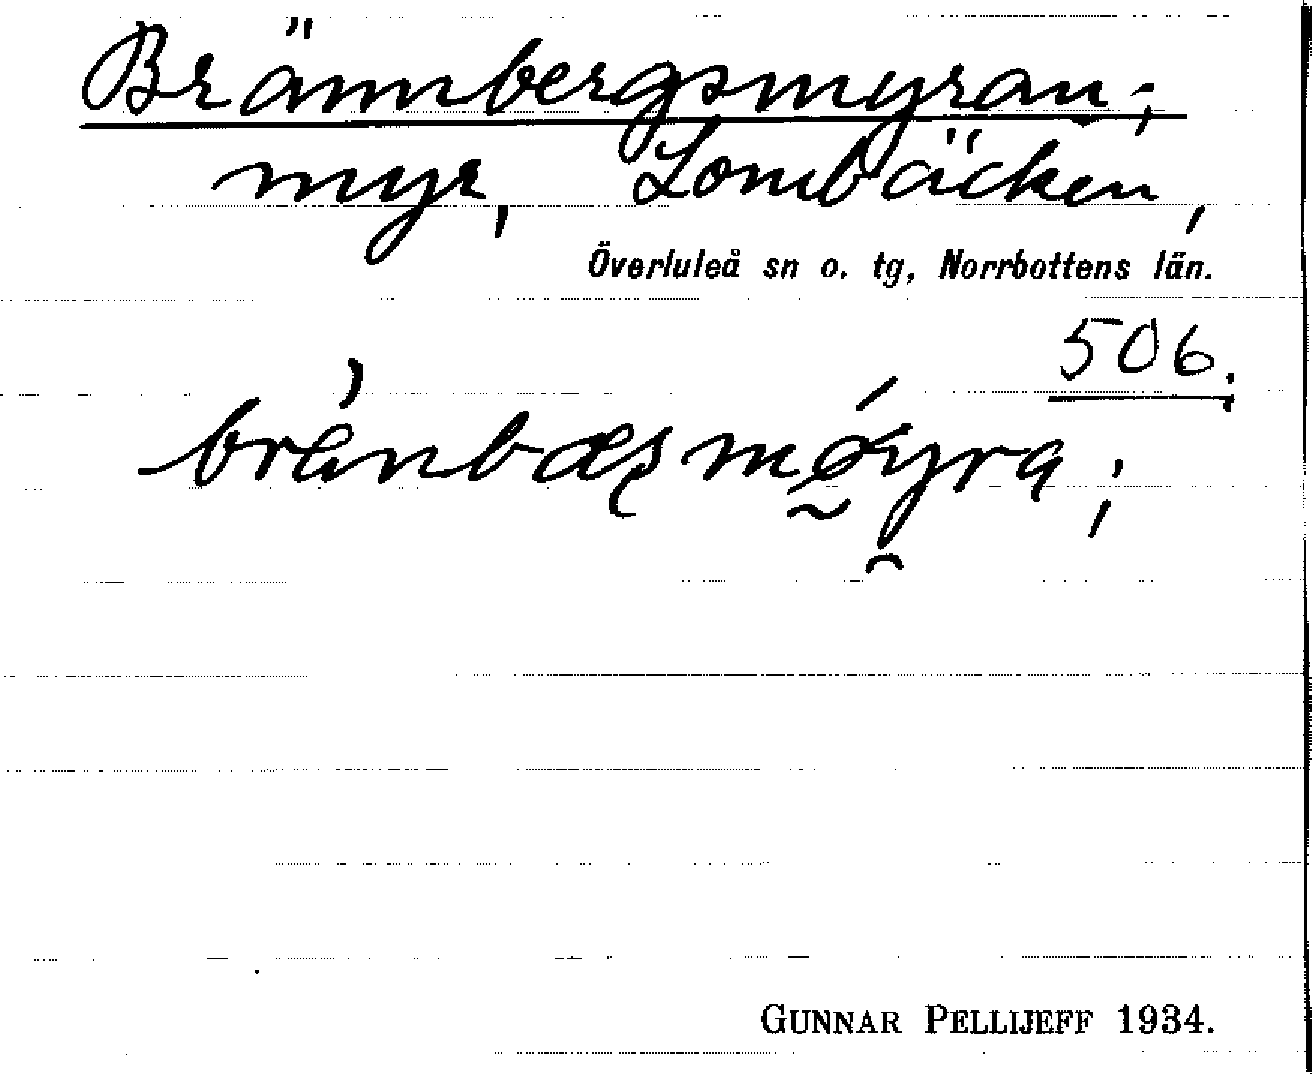 Brännbergsmyran;
myr, Lombäcken,
Överluleå sn o. tg, Norrbottens län.
506.
GUNNAR PELLIJEFF 1934.